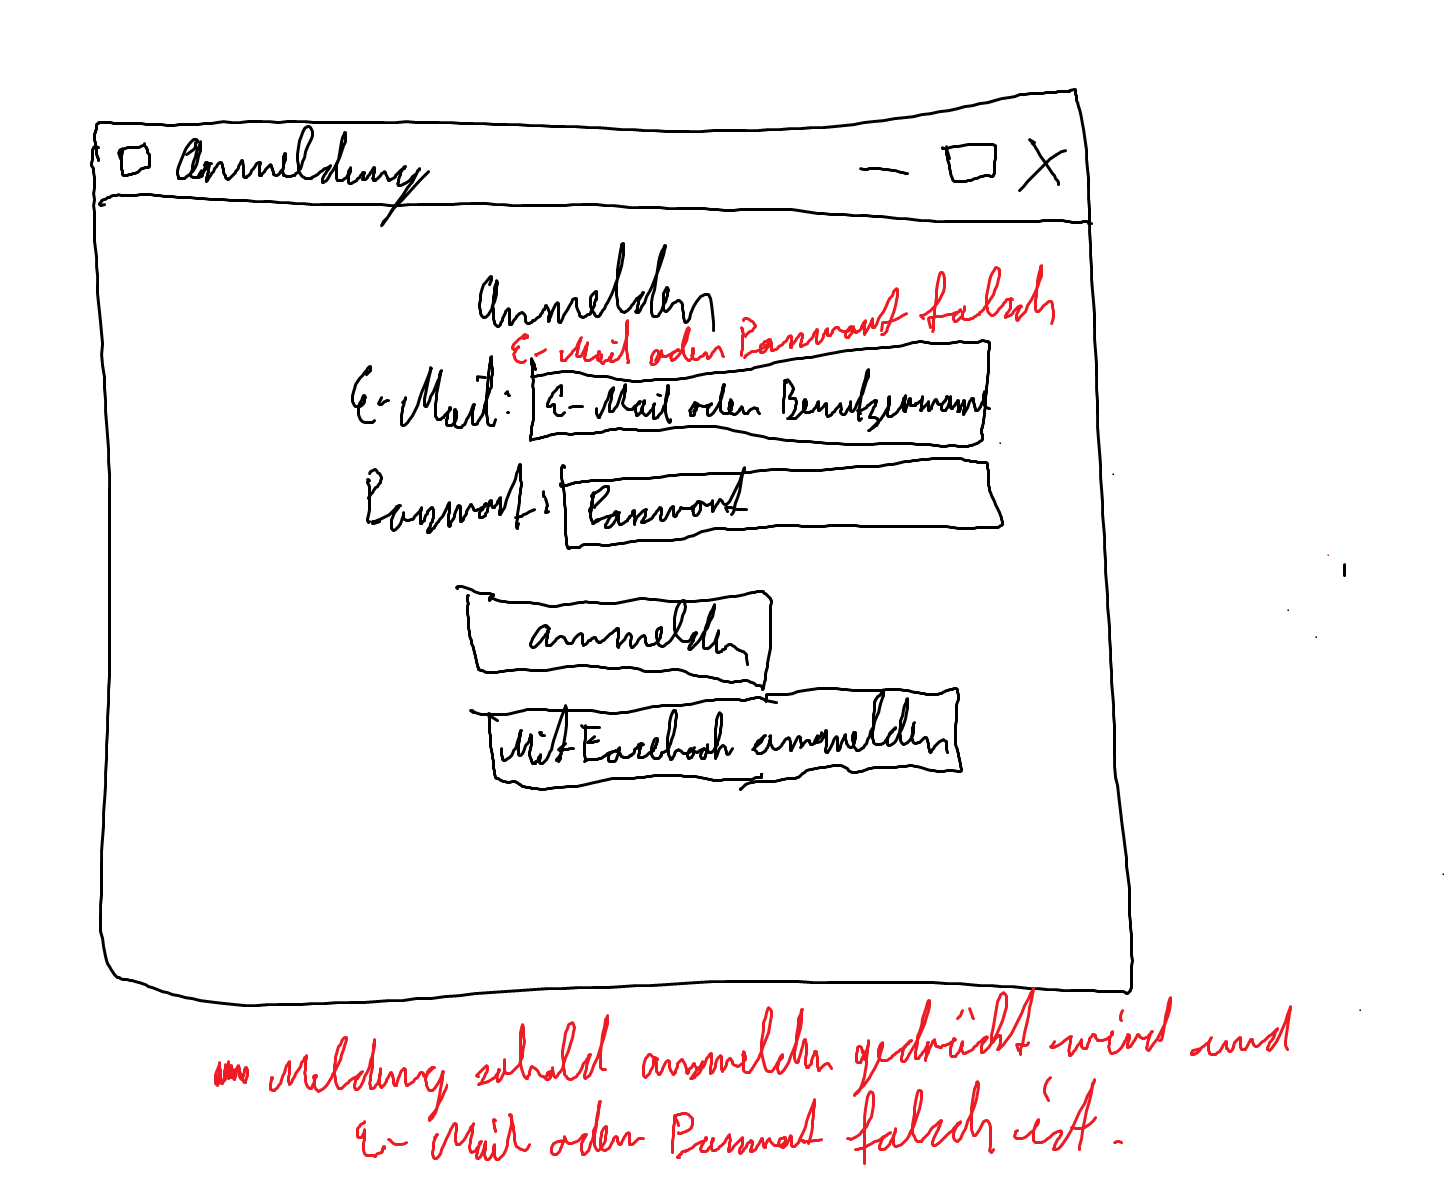 Anmeldung
Anmelden
E-Mail oder Passwort falsch
E-Mail: E-Mail oder Benutzername
Passwort: Passwort
anmelden
Mit Facebook anmelden
Meldung sobald anmelden gedrückt wird und
E-Mail oder Passwort falsch ist.